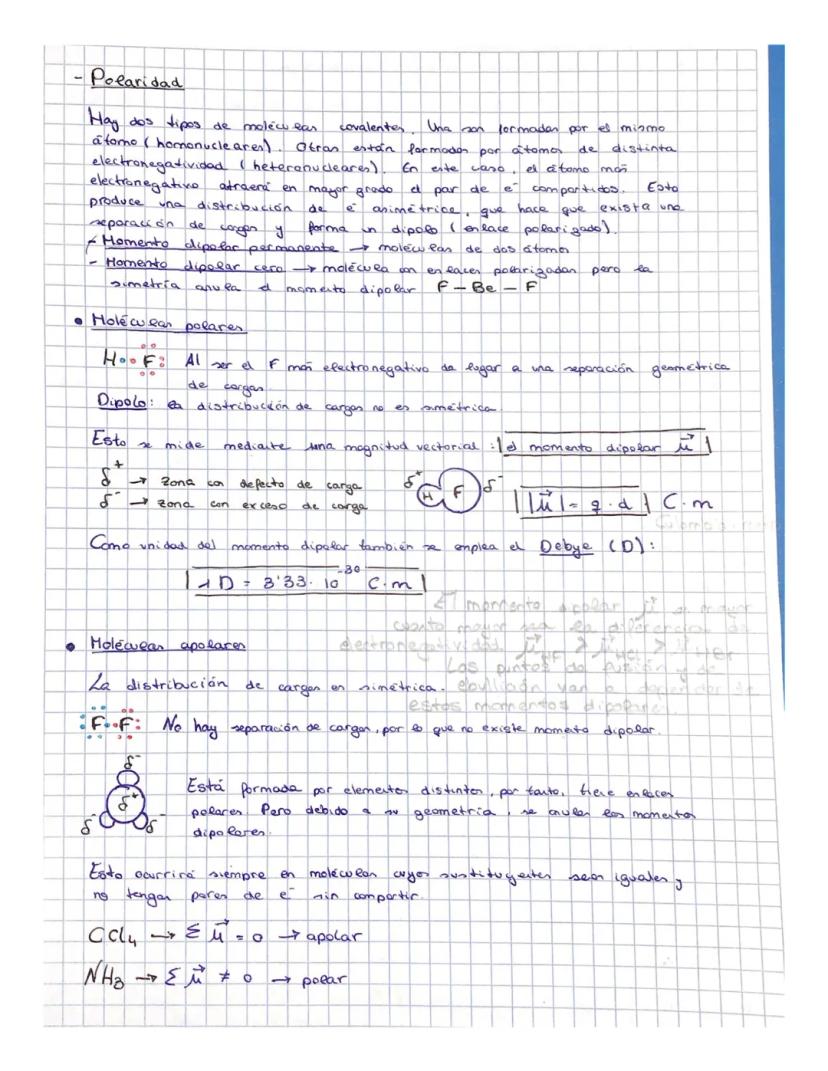 - Polaridad
Hay dos tipos de moléculas covalentes. Una son formadas por el mismo
átomo (homonucleares). Otras están formadas por átomos de distinta
electronegatividad (heteronucleares). En este caso, el átomo más
electronegativo atraerá en mayor grado el par de e⁻ compartidos. Esto
produce una distribución de e⁻ asimétrica, que hace que exista una
separación de cargas y forma un dipolo (enlace polarizado).
- Momento dipolar permanente → moléculas de dos átomos
- Momento dipolar cero → molécula con enlaces polarizados pero la
simetría anula el momento dipolar F - Be - F
• Moléculas polares
H F Al ser el F más electronegativo da lugar a una separación geométrica
de cargas.
Dipolo: la distribución de cargas no es simétrica
Esto se mide mediante una magnitud vectorial: el momento dipolar μ⃗
δ⁺ → zona con defecto de carga δ⁺ H F δ⁻
δ⁻ → zona con exceso de carga |μ⃗| = q · d C·m
Como unidad del momento dipolar también se emplea el Debye (D):
1 D = 3'33 · 10⁻³⁰ C·m
El momento dipolar μ⃗ es mayor
cuanto mayor sea la diferencia de
• Moléculas apolares electronegatividad. μ⃗HF > μ⃗HCl > μ⃗HBr
Los puntos de fusión y de
La distribución de cargas es simétrica. ebullición van a depender de
estos momentos dipolares.
F F No hay separación de cargas, por lo que no existe momento dipolar.
δ⁻
δ⁺ Está formada por elementos distintos, por tanto, tiene enlaces
δ⁻ δ⁻ polares. Pero debido a su geometría, se anulan los momentos
dipolares.
Esto ocurrirá siempre en moléculas cuyos sustituyentes sean iguales y
no tengan pares de e⁻ sin compartir.
CCl₄ → Σ μ⃗ = 0 → apolar
NH₃ → Σ μ⃗ ≠ 0 → polar